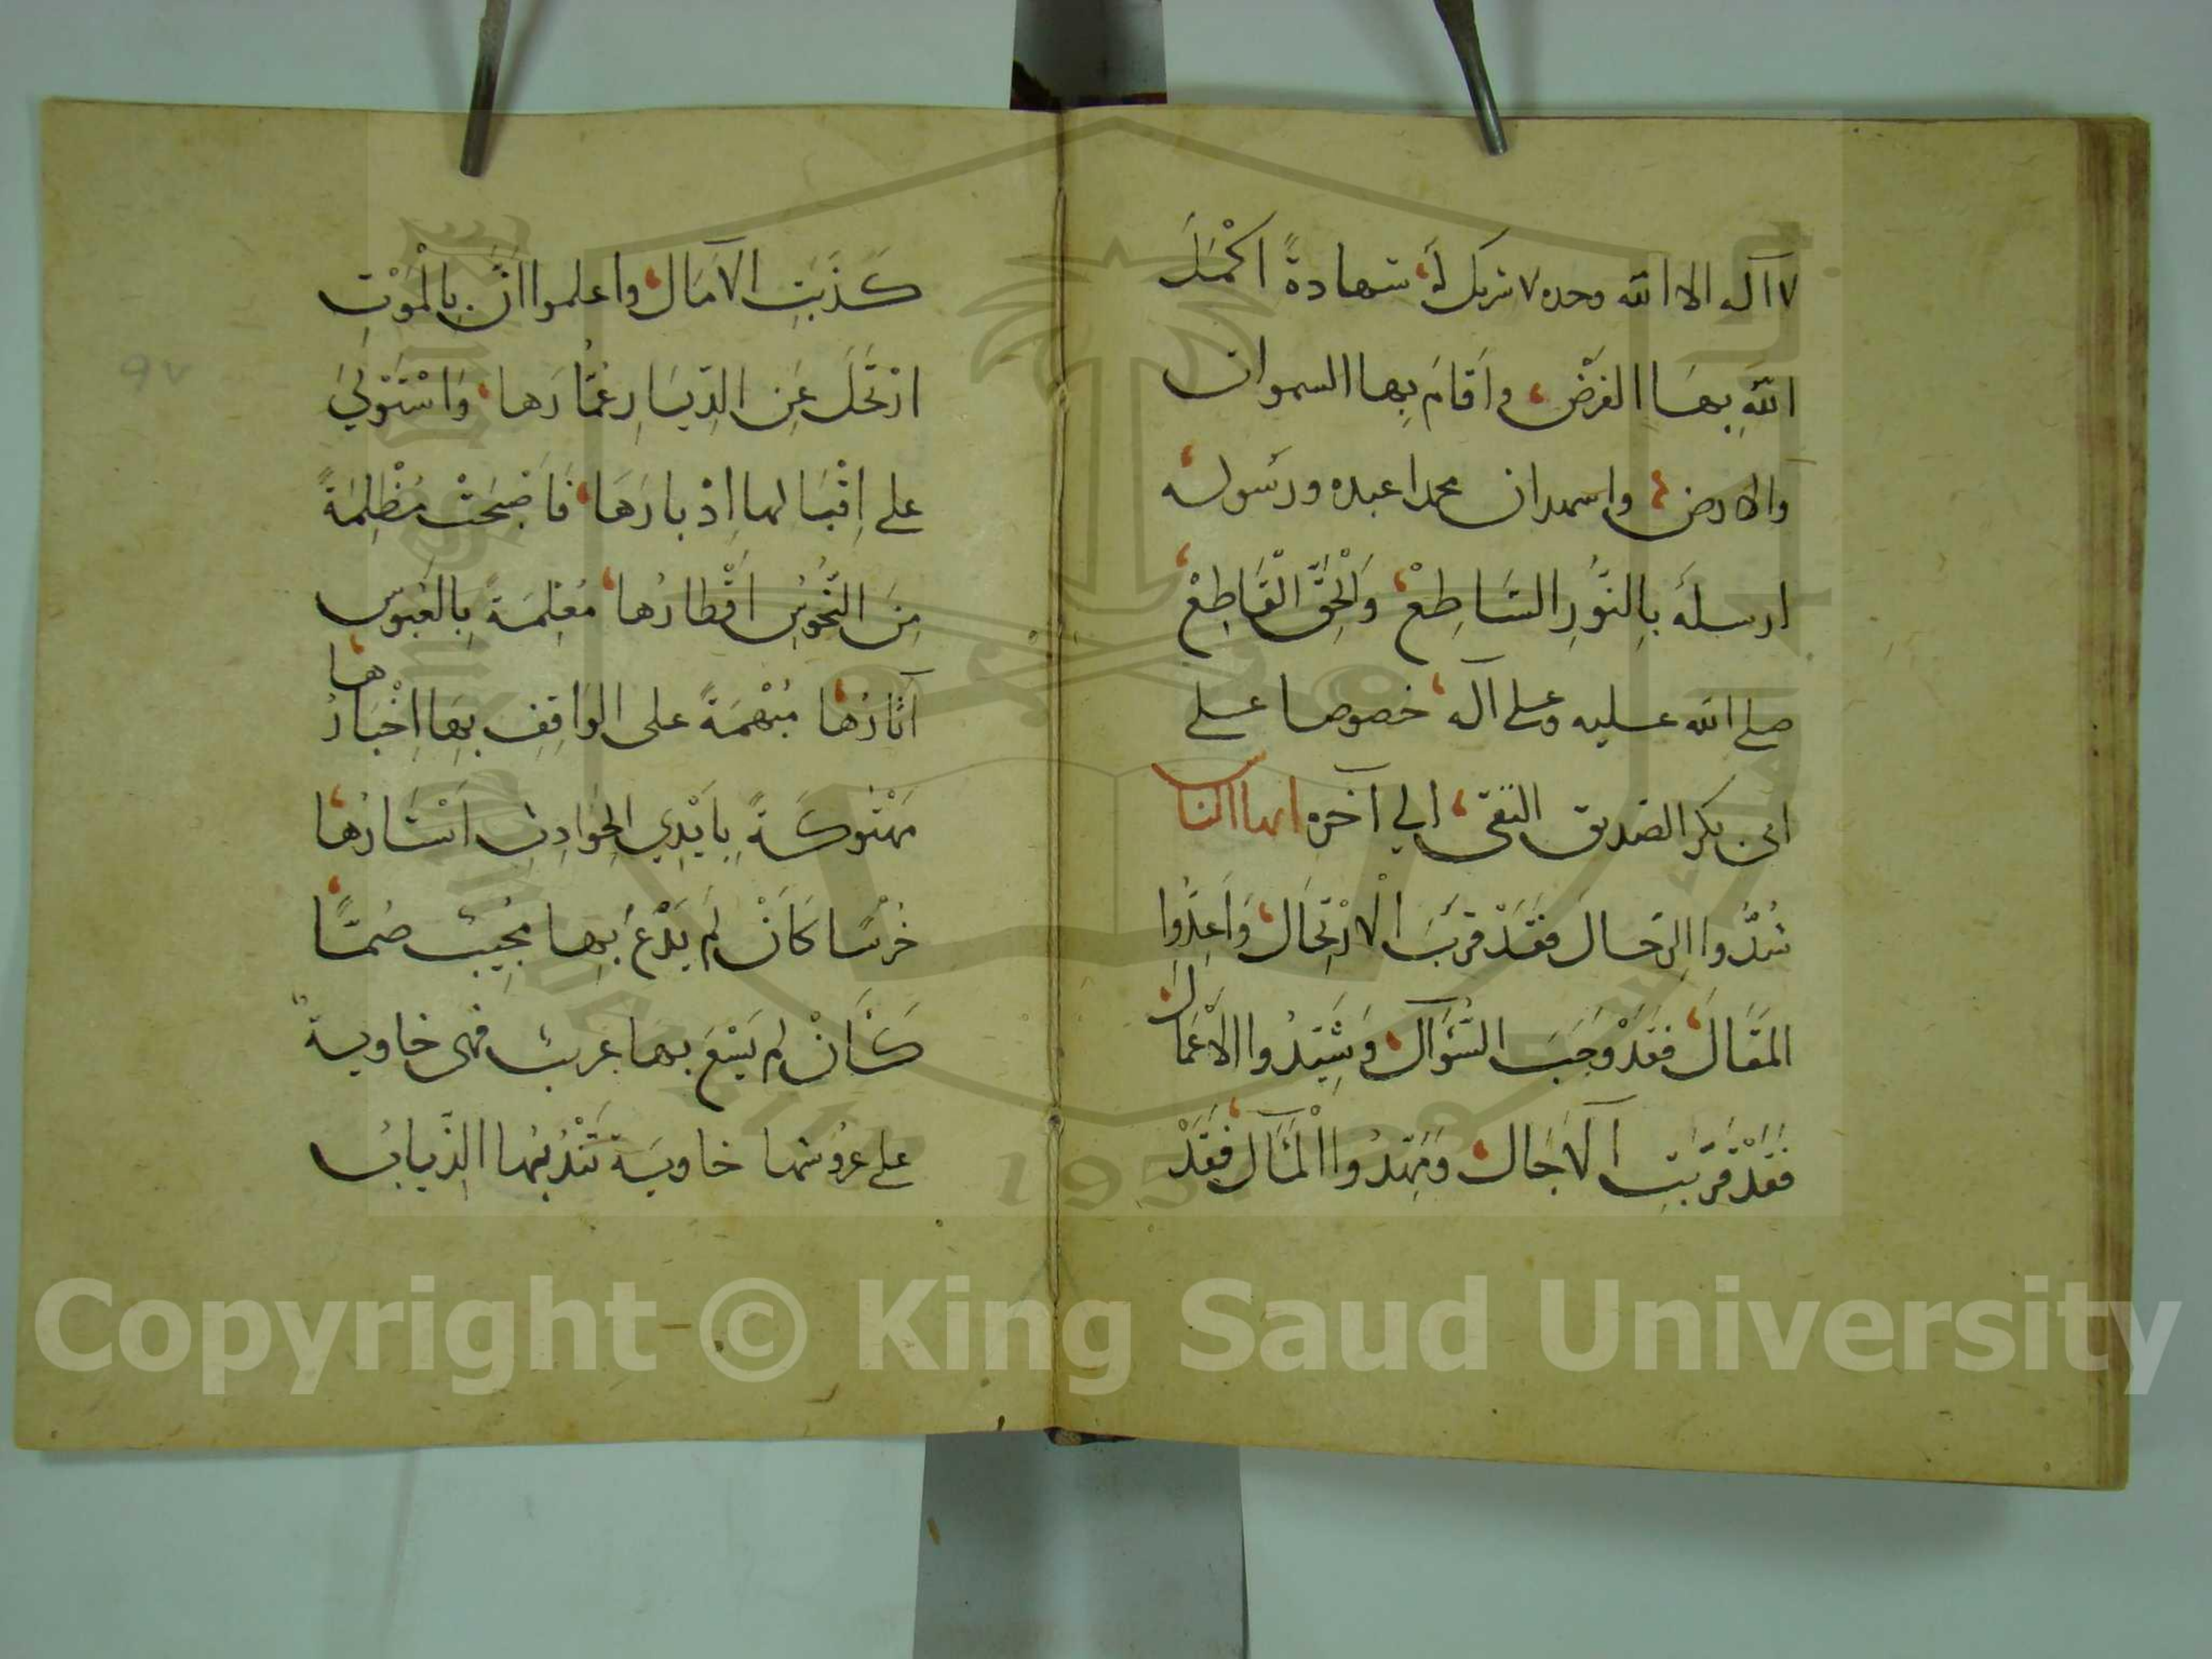 لا اله الا الله وحده لا شريك لَهُ شهادةً اكْمَلَ
اللهُ بِهَا الفَرْضَ و اَقَامَ بِها السموات
والارض واشهد ان محمدا عبده ورسوله
ارسلَهُ بِالنُّورِ السَّاطِعْ وَالْحَقِّ القَاطِعْ
صلى الله عليه وعلى آله خصوصا على
ابى بكر الصديق التقى الي آخره ايها الناس
شُدُّوا الرِّحالَ فَقَدْ قَرُبَ الاِرْتِحَال وَاَعِدُّوا
المَقَالَ فَقَدْ وَجَبَ السُّؤَال وَشَيِّدُوا الاَعْمَال
فَقَدْ قَرُبَتِ الآجَال وَمَهِّدُوا الْمَآل فَقَدْ
كَذَبَتِ الآمَال واعلموا انَّ بِالْمَوْتِ
ارْتَحَلَ عَنِ الدِّيَارِ عُمَّارُهَا وَاسْتَوْلَي
على اِقْبَالها اِدْبارُهَا فَاَضْحَتْ مُظْلِمَةً
مِنَ النُّحُوسِ اَقْطارُها مُعْلِمَةً بِالعُبُوسِ
آثَارُهَا مُبْهَمَةً على الوَاقِفِ بِهَا اِخْبَارُها
مَهْتُوكَةً بِاَيْدِي الحَوَادِثِ اَسْتَارُهَا
خُرْسًا كَاَنْ لَمْ يَدْعُ بِها مُجِيبٌ صُمًّا
كَاَنْ لم يَسْعَ بها عريبٌ فهى خاوية
على عُرُوشها خاوية تَنْدُبُها الذِّيابُ
٩٧
Copyright © King Saud University
1957